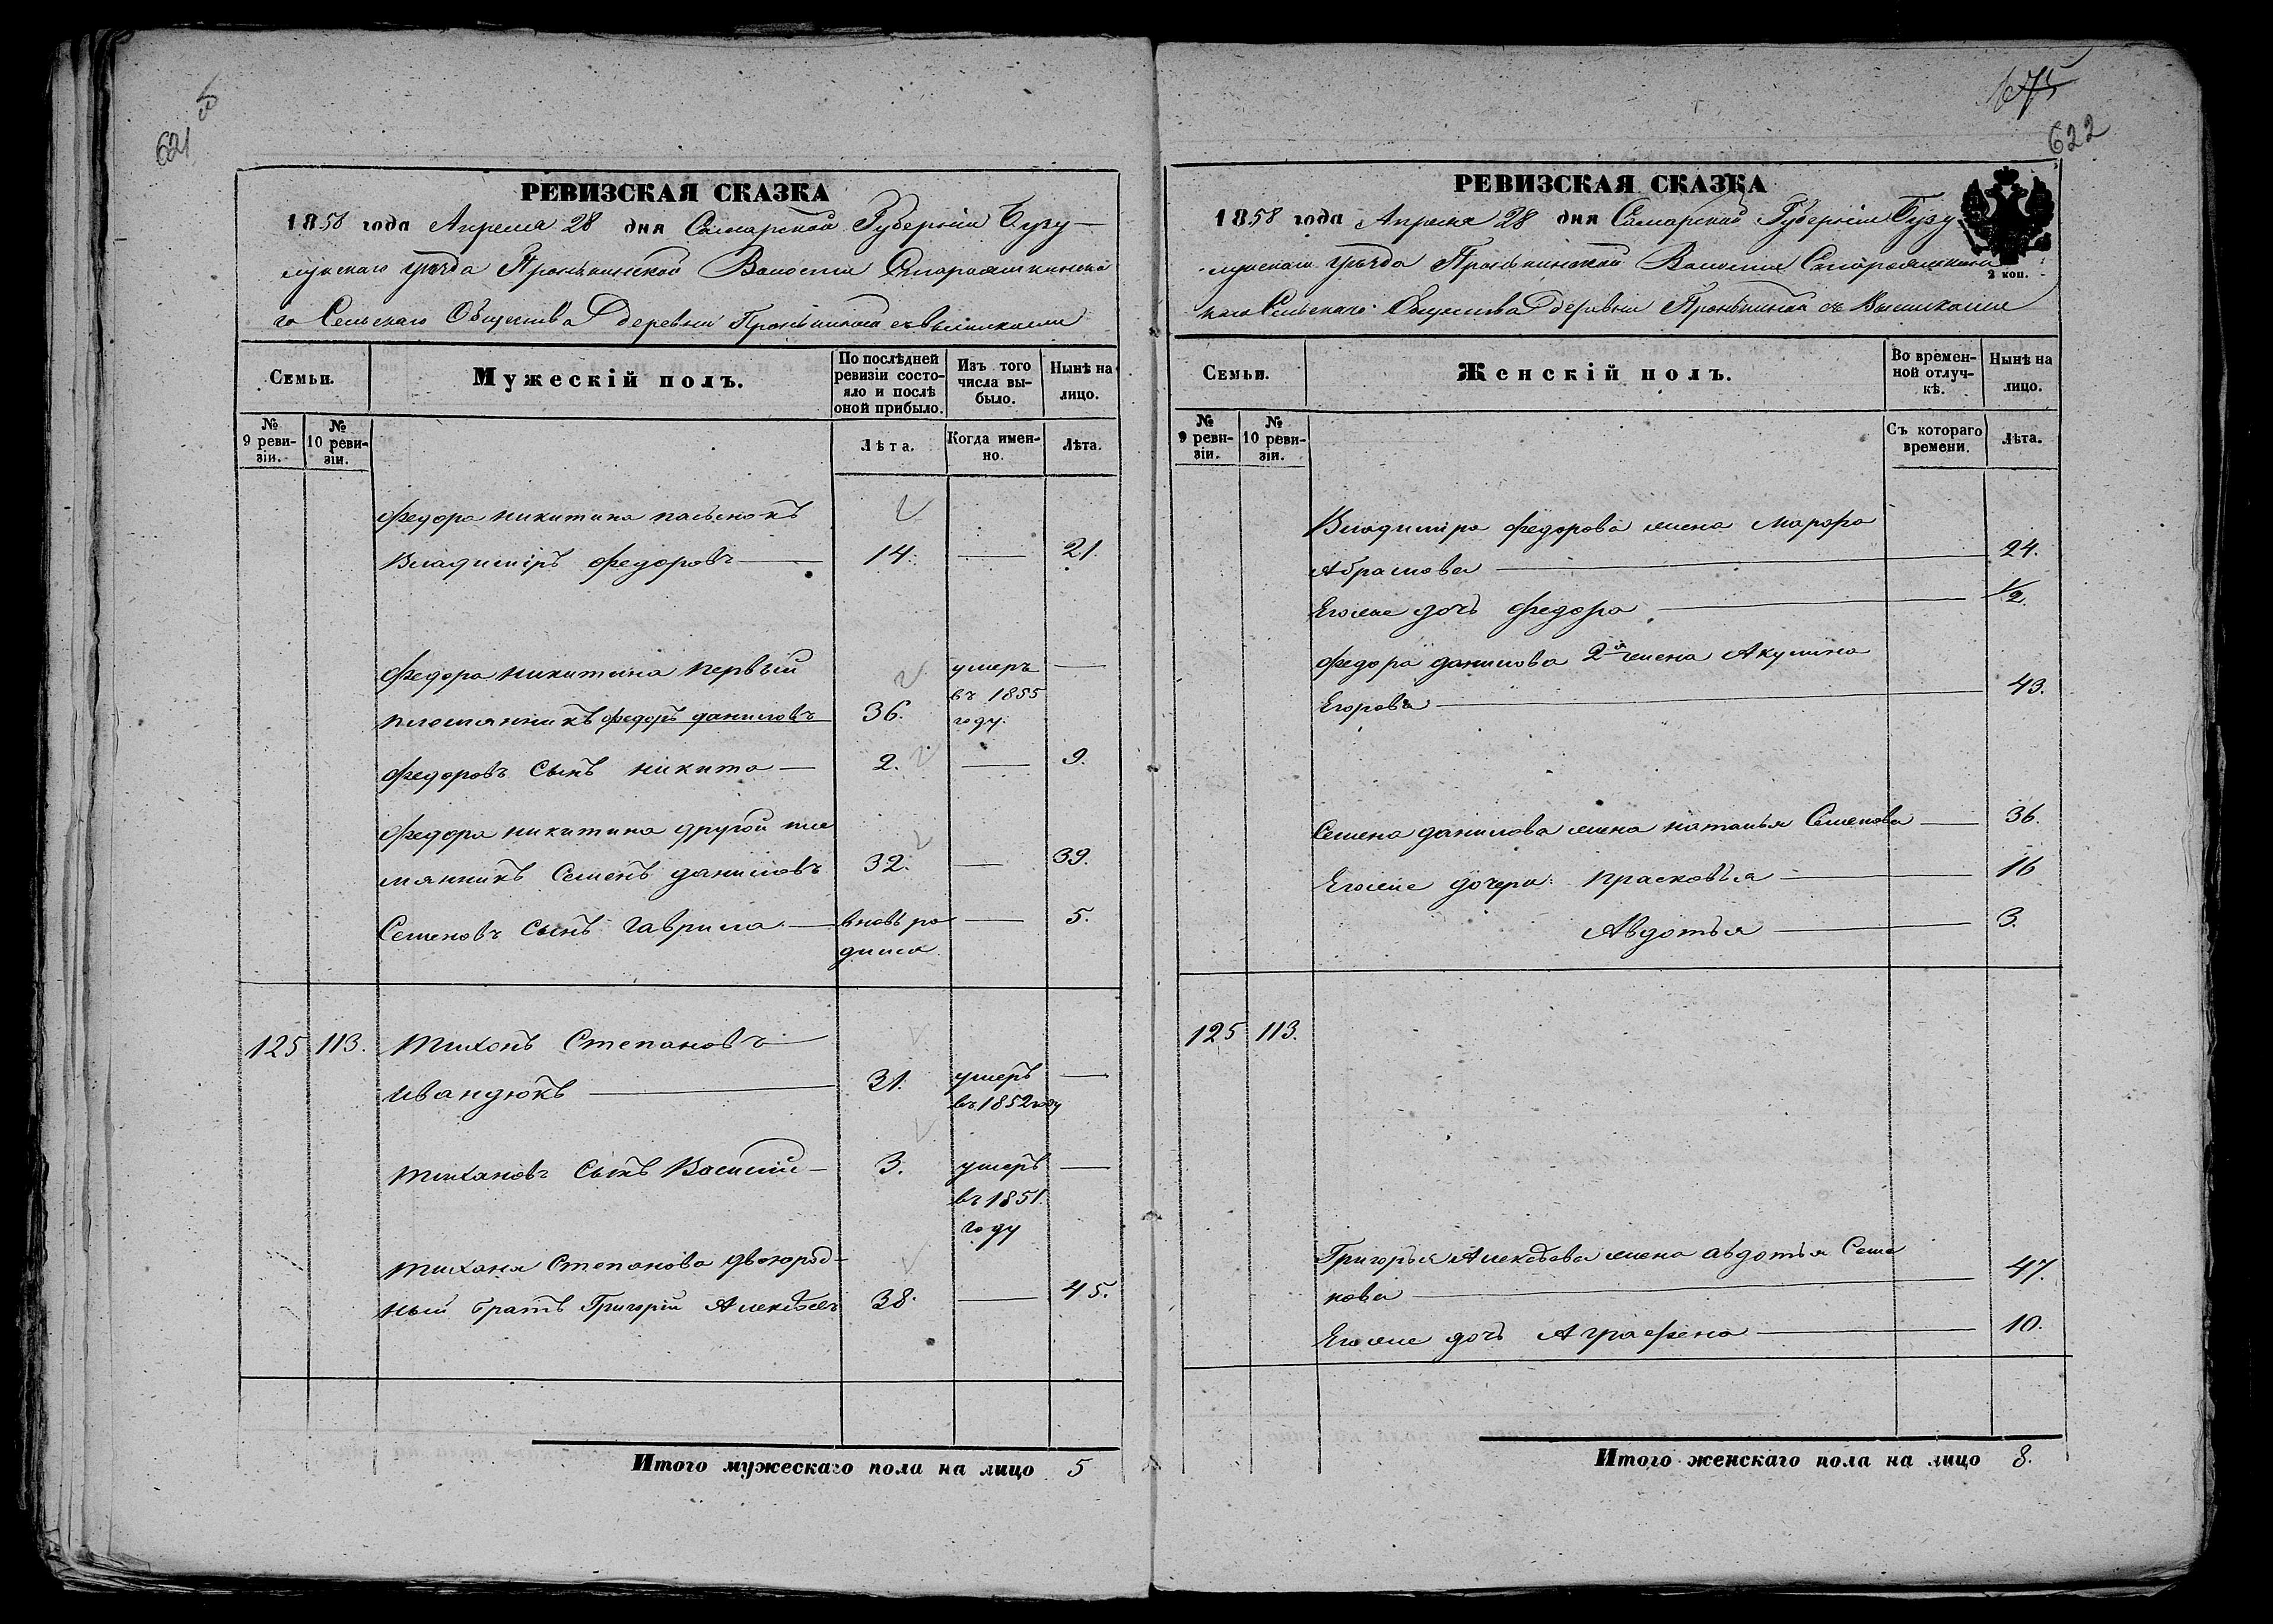 621
РЕВИЗСКАЯ СКАЗКА
1858 года Апреля 28 дня Самарской Губерніи Бузу-
лукскаго уѣзда Пронькинской Волости
го Сельскаго Общества деревни Пронькиной съ Выселками
Семьи.
Мужескій полъ.
По послѣдней ревизіи состояло и послѣ оной прибыло.
Изъ того числа выбыло.
Нынѣ на лицо.
№ 9 ревизіи.
№ 10 ревизіи.
Лѣта.
Когда именно.
Лѣта.
Федора никитина пасынокъ
Владиміръ федоровъ — 14. — 21.
Федора никитина первый умеръ —
племянникъ федоръ даниловъ 36. въ 1855 году.
Федоровъ Сынъ никита — 2. — 9.
Федора никитина другой пле
мянникъ Семенъ даниловъ 32. — 39.
Семеновъ Сынъ гаврила — вновь ро — 5.
дился
125 113. Тихонъ Степановъ
ивандюкъ — 31. умеръ —
въ 1852 году
Тихановъ Сынъ Василий — 3. умеръ —
въ 1851.
году
Тихана Степанова двоюрод-
ный братъ Григорій Алексѣевъ 38. — 45.
Итого мужескаго пола на лицо 5
622
РЕВИЗСКАЯ СКАЗКА
1858 года Апреля 28 дня Самарской Губерніи Бузу
лукскаго уѣзда Пронькинской Волости
2 коп.
Сельскаго Общества деревни Пронькиной съ Выселками
Семьи.
Женскій полъ.
Во временной отлучкѣ.
Нынѣ на лицо.
№ 9 ревизіи.
№ 10 ревизіи.
Съ котораго времени.
Лѣта.
Владиміра федорова жена Марфа
Абрамова — 24.
Егоже дочь федора — 1/2.
Федора данилова 2я жена Акулина
Егорова — 43.
Семена данилова жена наталья Семенова — 36.
Егоже дочери прасковья — 16
Авдотья — 3.
125 113.
Григорья Алексѣева жена авдотья Семе
нова — 47.
Егоже дочь Аграфена — 10.
Итого женскаго пола на лицо 8.